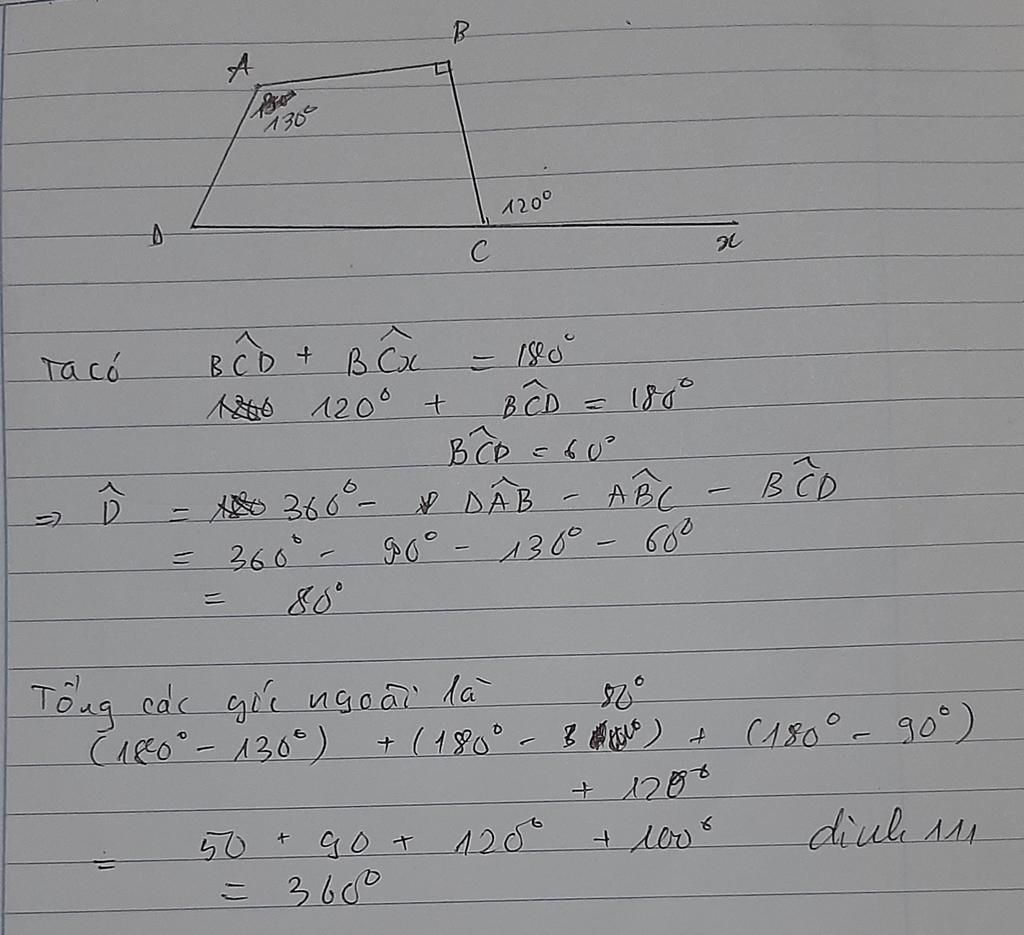 A
B
130°
120°
D
C
x
Ta có BĈD + BĈx = 180°
120° + BĈD = 180°
BĈD = 60°
⇒ D̂ = 360° - DÂB - AB̂C - BĈD
= 360° - 90° - 130° - 60°
= 80°
Tổng các góc ngoài là
80°
(180° - 130°) + (180° - ) + (180° - 90°)
+ 120°
= 50 + 90 + 120° + 100°
= 360°